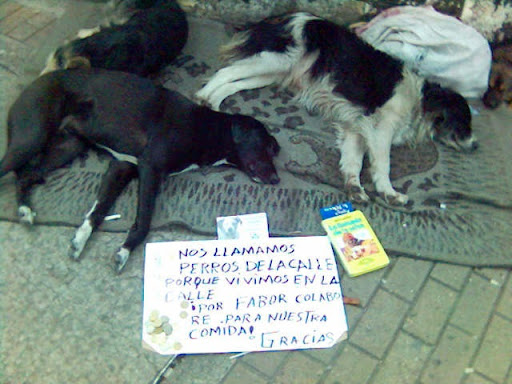 NOS LLAMAMOS
PERROS, DE LA CALLE
PORQUE VIVIMOS EN LA
CALLE
¡POR FABOR COLABO
RE. PARA NUESTRA
COMIDA!
GRACIAS